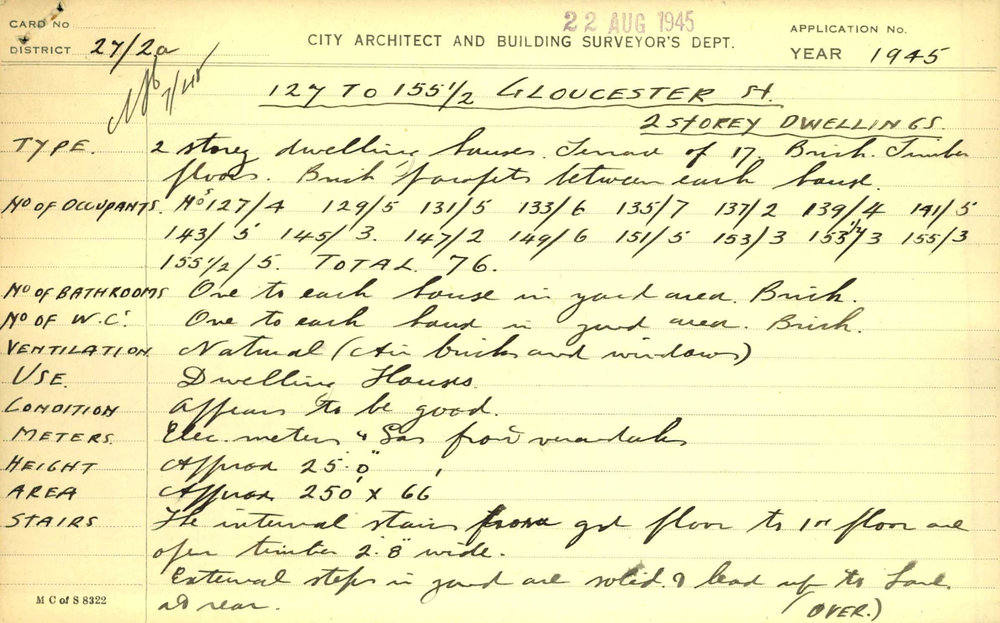 CARD No
DISTRICT 27/2a
22 AUG 1945
CITY ARCHITECT AND BUILDING SURVEYOR'S DEPT.
APPLICATION No.
YEAR 1945
7/45
127 TO 155 1/2 GLOUCESTER St.
2 STOREY DWELLINGS.
TYPE. 2 storey dwelling houses. Terrace of 17. Brick. Timber
floors. Brick parapets between each house.
No OF OCCUPANTS. Nos 127/4 129/5 131/5 133/6 135/7 137/2 139/4 141/5
143/5 145/3. 147/2 149/6 151/5 153/3 153 1/2/3 155/3
155 1/2/5. TOTAL 76.
No OF BATHROOMS One to each house in yard area. Brick.
No OF W.C.s One to each house in yard area. Brick.
VENTILATION. Natural (Air bricks and windows)
USE. Dwelling Houses.
CONDITION Appears to be good.
METERS. Elec. meters & Gas front verandahs
HEIGHT Approx 25'.0"
AREA Approx 250' x 66'
STAIRS The internal stairs from grd floor to 1st floor are
open timber 2'.8" wide.
External steps in yard are solid & lead up to Lane
at rear.
(OVER.)
M C of S 8322